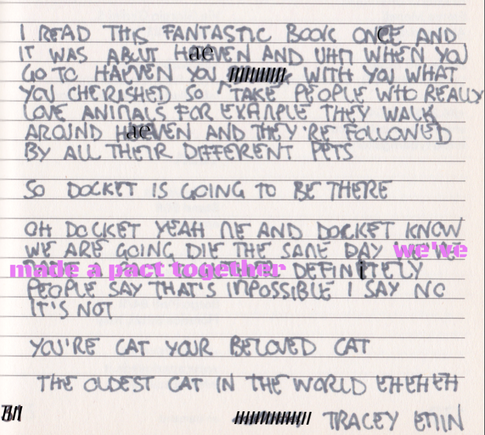 I READ THIS FANTASTIC BOOK ONCE AND
IT WAS ABUT HAEVEN AND UHM WHEN YOU
GO TO HAEVEN YOU WITH YOU WHAT
YOU CHERISHED SO TAKE PEOPLE WHO REALLY
LOVE ANIMALS FOR EXAMPLE THEY WALK
AROUND HAEVEN AND THEY'RE FOLLOWED
BY ALL THEIR DIFFERENT PETS
SO DOCKET IS GOING TO BE THERE
OH DOCKET YEAH ME AND DOCKET KNOW
WE ARE GOING DIE THE SAME DAY we've
made a pact together DEFINITELY
PEOPLE SAY THAT'S IMPOSSIBLE I SAY NO
IT'S NOT
YOU'RE CAT YOUR BELOVED CAT
THE OLDEST CAT IN THE WORLD EHEHEH
TRACEY EMIN